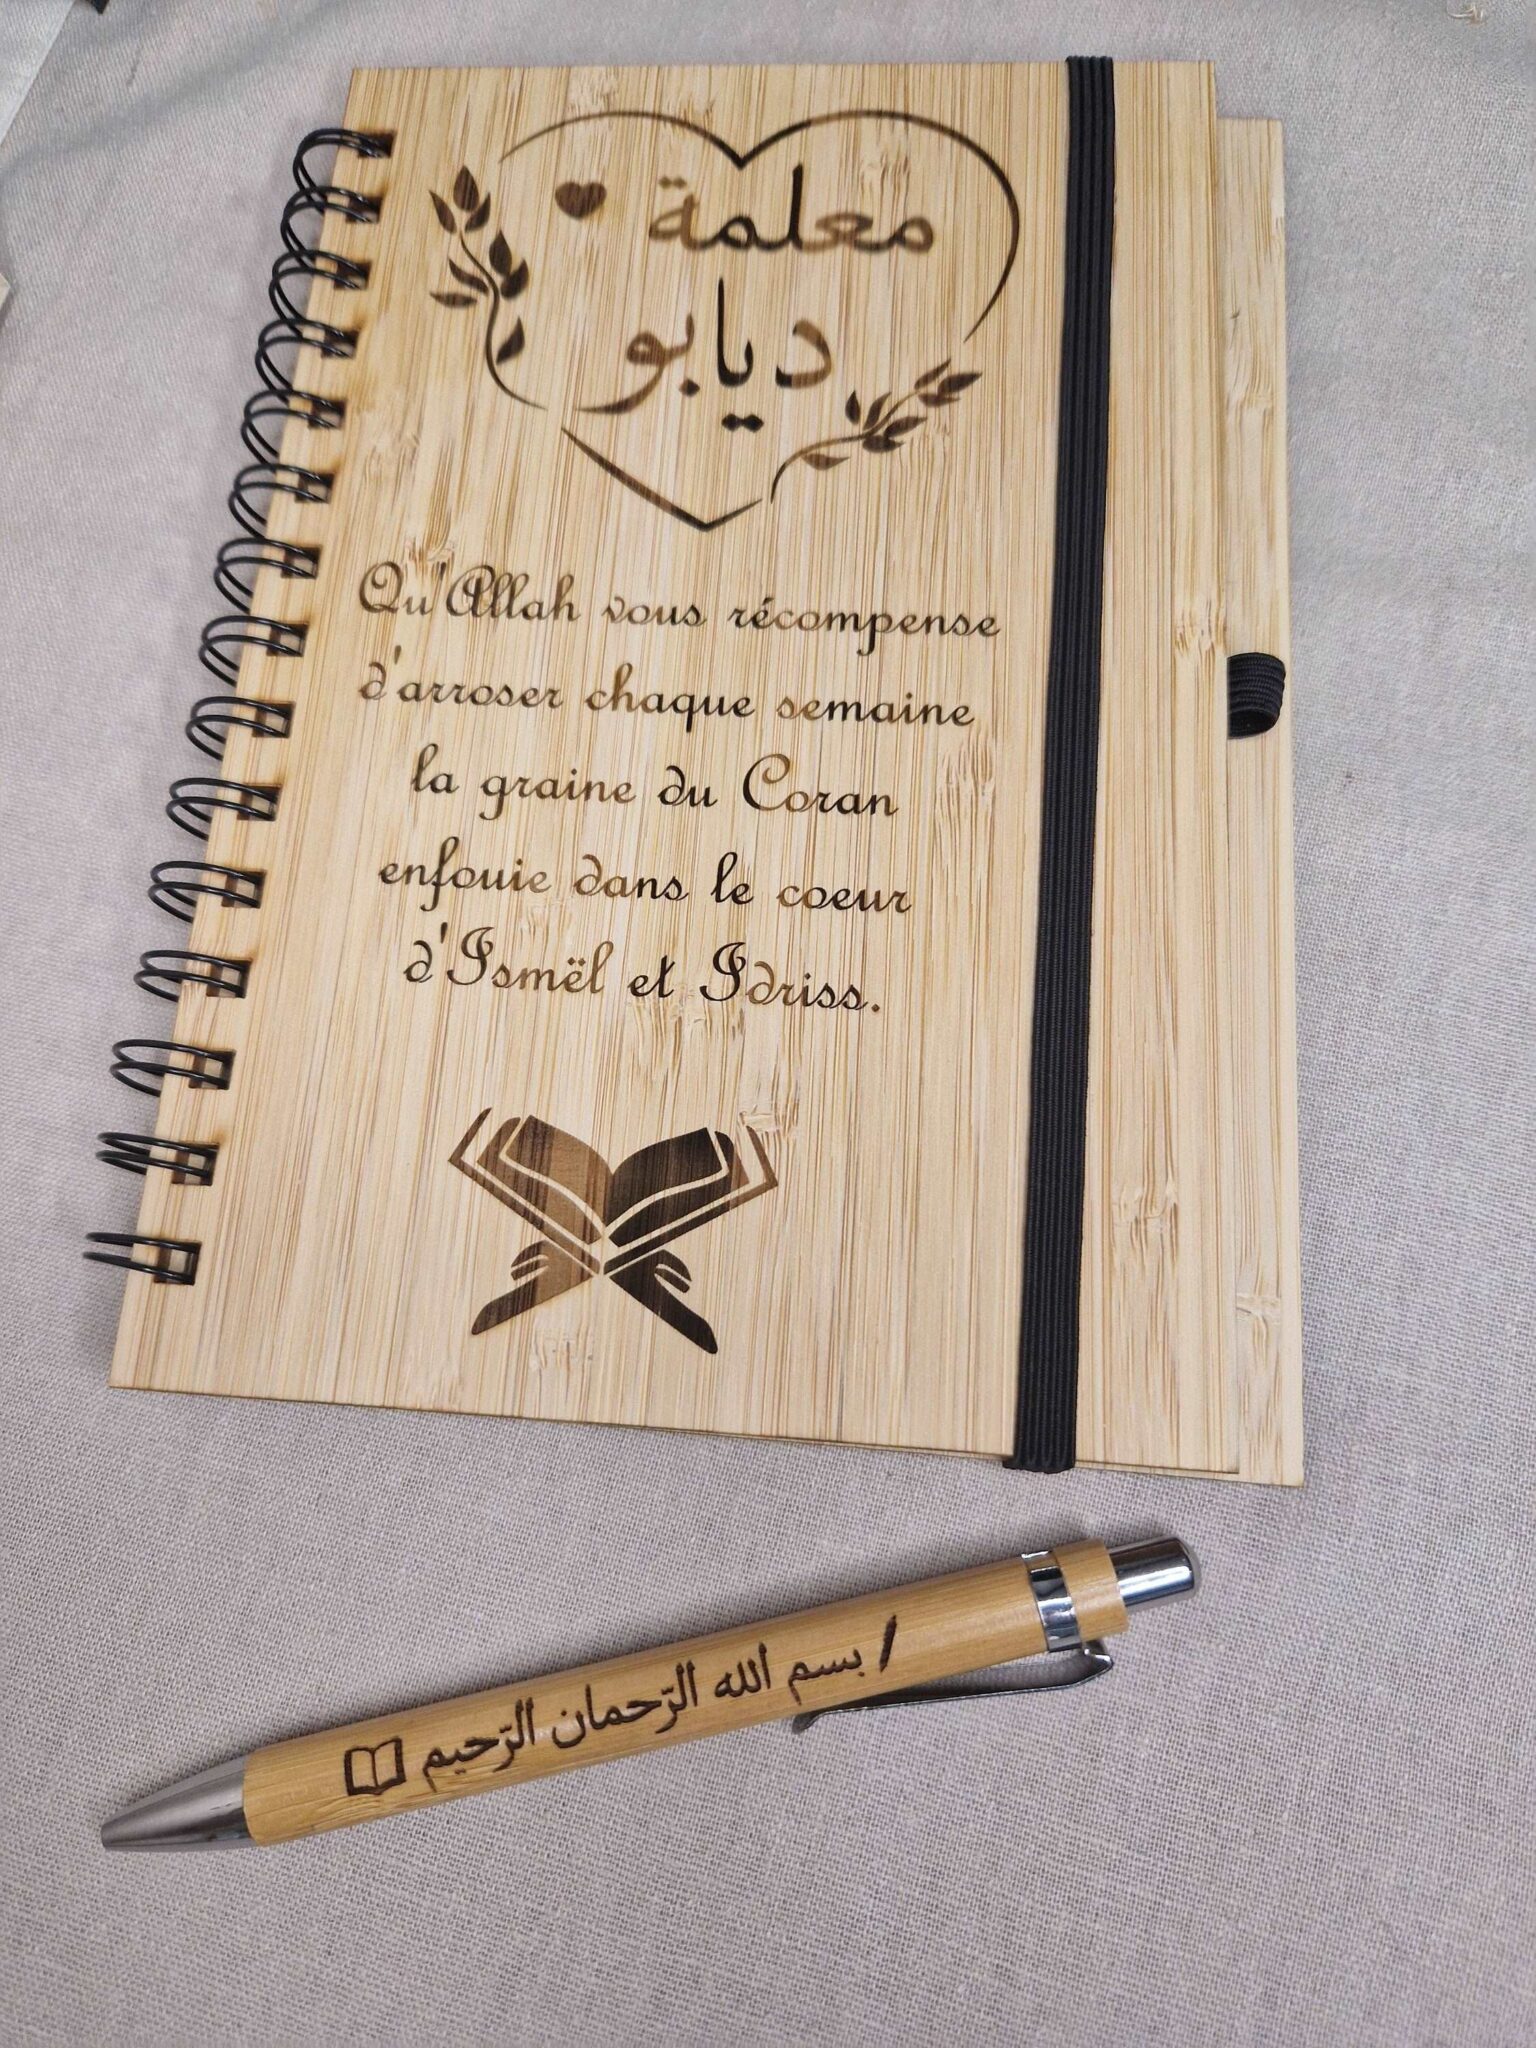 معلمة
ديابو
Qu'Allah vous récompense
d'arroser chaque semaine
la graine du Coran
enfouie dans le coeur
d'Ismël et Idriss.
بسم الله الرّحمان الرّحيم